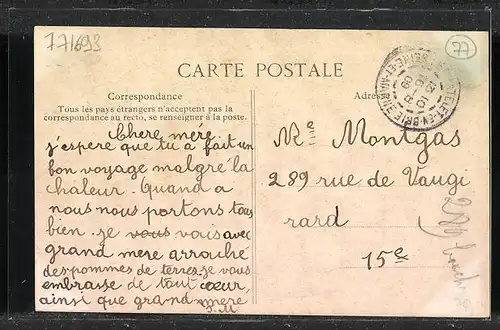 771693
77
CARTE POSTALE
Correspondance
Tous les pays étrangers n'acceptent pas la
correspondance au recto, se renseigner à la poste.
Chere mére
j'espere que tu à fait un
bon voyage malgré la
chaleur. Quand a
nous nous portons tous
bien. je vous vais avec
grand mere arraché
des pommes de terres. je vous
embrasse de tout cœur,
ainsi que grand mere
P. M
Adres
SEINE-ET-MARNE
Me Montgas
289 rue de Vaugi
rard
15e